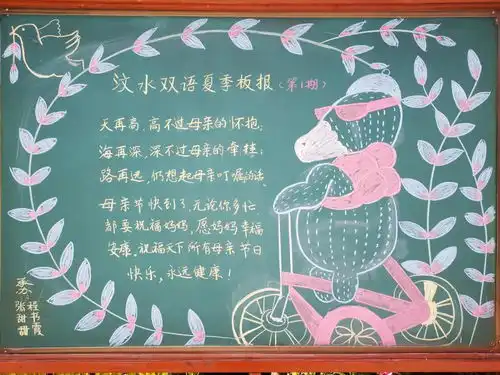 汶水双语夏季板报（第1期）
天再高，高不过母亲的怀抱；
海再深，深不过母亲的牵挂；
路再远，仍想起母亲叮嘱的话
母亲节快到了，无论你多忙
都要祝福妈妈，愿妈妈幸福
安康，祝福天下所有母亲节日
快乐，永远健康！
承办
程书霞
张甜甜